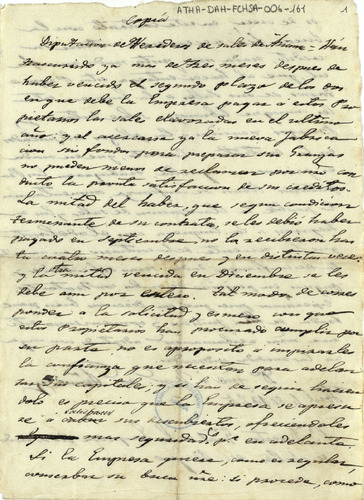 ATHA-DAH-FCHSA-004-161
1
Copia
Diputacion de Herederos de sales de Añana = Han
trascurrido ya mas de tres meses despues de
haber vencido el segundo plazo de los dos
en que debe la Empresa pagar á estos Pro
pietarios las sales elaboradas en el ultimo
año: y al acercarse ya la nueva fabrica
cion sin fondos para preparar sus Granjas
no pueden menos de reclamar por mi con
ducto la pronta satisfaccion de sus creditos.
La mitad del haber, que segun condicion
terminante de su contrata, se les debió haber
pagado en Septiembre, no la recibieron has
ta cuatro meses despues y en distintas veces:
y la otra mitad vencida en Diciembre se les
debe aun por entero. Tal modo de corres
ponder á la solicitud y esmero con que
estos Propietarios han procurado cumplir por
su parte no es aproposito á inspirarles
la confianza que necesitan para adelan
tar sus capitales, y si han de seguir hacien
dolo es preciso que la Empresa se apresu
re á satisfacer sus descubiertos, ofreciendoles
mas seguridad pª en adelante
Si la Empresa quiere, como es regular
conservar su buen nre. si procede, como